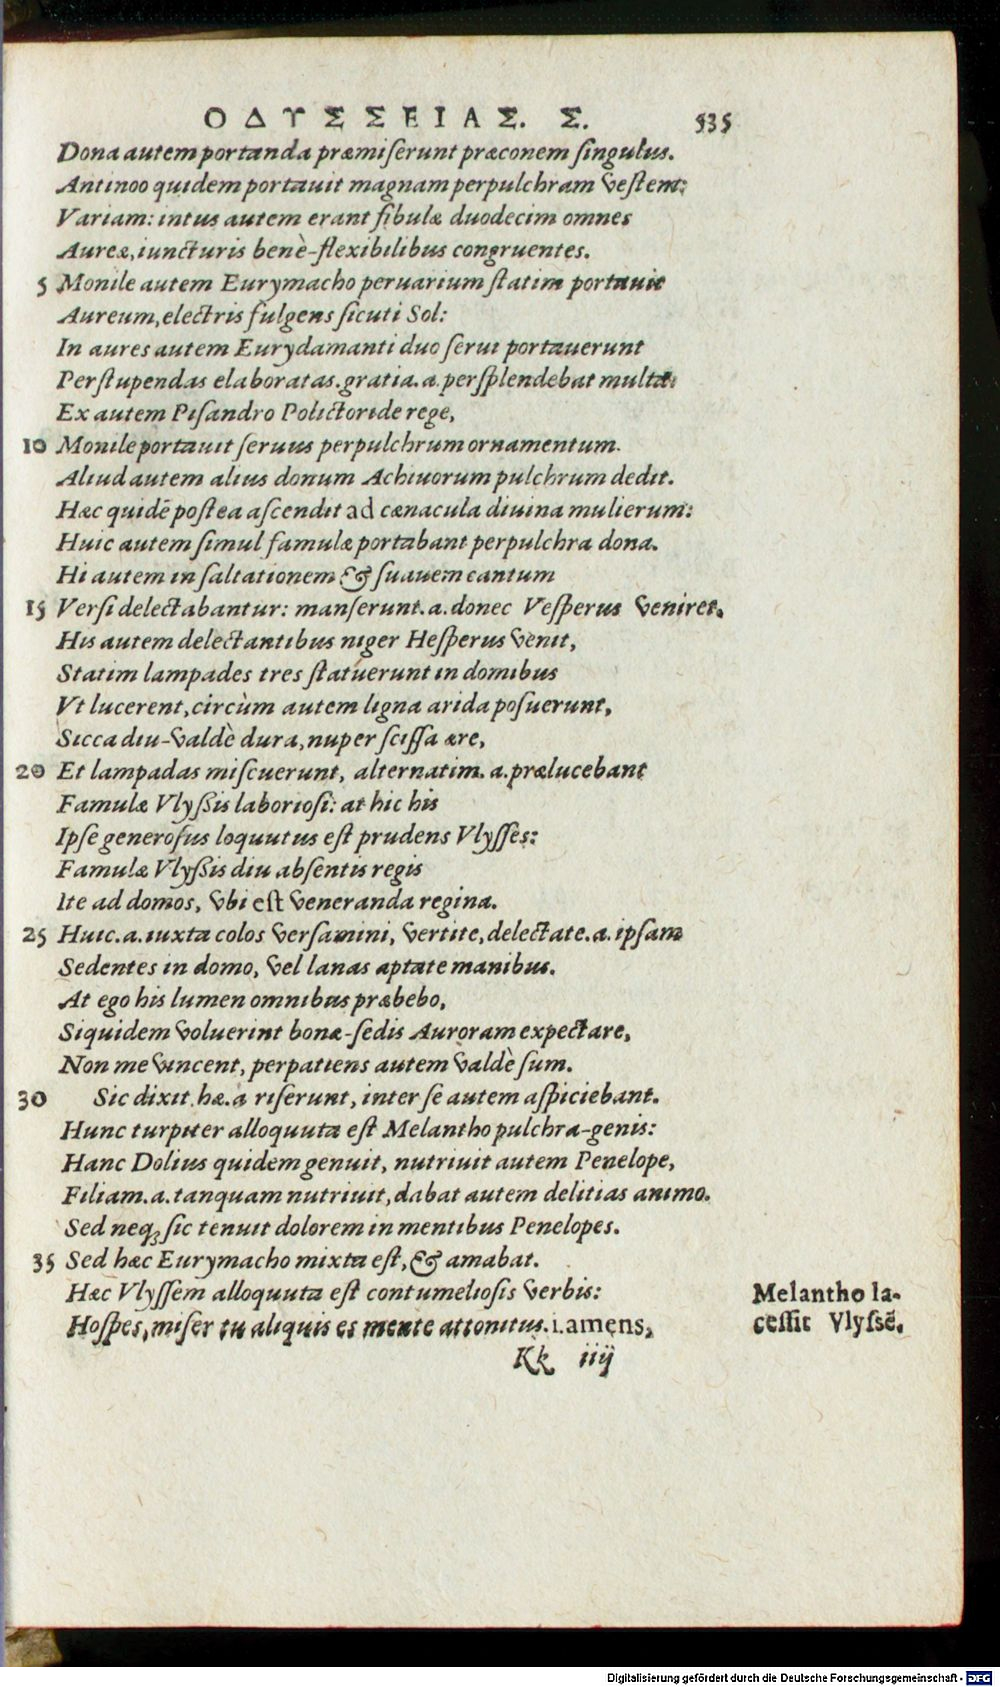 ΟΔΥΣΣΕΙΑΣ. Σ. 535
Dona autem portanda præmiserunt præconem singulus.
Antinoo quidem portauit magnam perpulchram vestem:
Variam: intus autem erant fibulæ duodecim omnes
Aureæ, iuncturis benè-flexibilibus congruentes.
5 Monile autem Eurymacho peruarium statim portauit
Aureum, electris fulgens sicuti Sol:
In aures autem Eurydamanti duo serui portauerunt
Perstupendas elaboratas. gratia. a. persplendebat multa:
Ex autem Pisandro Polictoride rege,
10 Monile portauit seruus perpulchrum ornamentum.
Aliud autem alius donum Achiuorum pulchrum dedit.
Hæc quidē postea ascendit ad cænacula diuina mulierum:
Huic autem simul famulæ portabant perpulchra dona.
Hi autem in saltationem & suauem cantum
15 Versi delectabantur: manserunt. a. donec Vesperus veniret.
His autem delectantibus niger Hesperus venit,
Statim lampades tres statuerunt in domibus
Vt lucerent, circùm autem ligna arida posuerunt,
Sicca diu-valdè dura, nuper scissa ære,
20 Et lampadas miscuerunt, alternatim. a. prælucebant
Famulæ Vlyssis laboriosi: at hic his
Ipse generosus loquutus est prudens Vlysses:
Famulæ Vlyssis diu absentis regis
Ite ad domos, vbi est veneranda regina.
25 Huic. a. iuxta colos versamini, vertite, delectate. a. ipsam
Sedentes in domo, vel lanas aptate manibus.
At ego his lumen omnibus præbebo,
Siquidem voluerint bonæ-sedis Auroram expectare,
Non me vincent, perpatiens autem valdè sum.
30 Sic dixit. hæ. a riserunt, inter se autem aspiciebant.
Hunc turpiter alloquuta est Melantho pulchra-genis:
Hanc Dolius quidem genuit, nutriuit autem Penelope,
Filiam. a. tanquam nutriuit, dabat autem delitias animo.
Sed neq; sic tenuit dolorem in mentibus Penelopes.
35 Sed hæc Eurymacho mixta est, & amabat.
Hæc Vlyssem alloquuta est contumeliosis verbis:
Hospes, miser tu aliquis es mente attonitus. i. amens,
Melantho la-
cessit Vlyssē.
Kk iiij
Digitalisierung gefördert durch die Deutsche Forschungsgemeinschaft - DFG